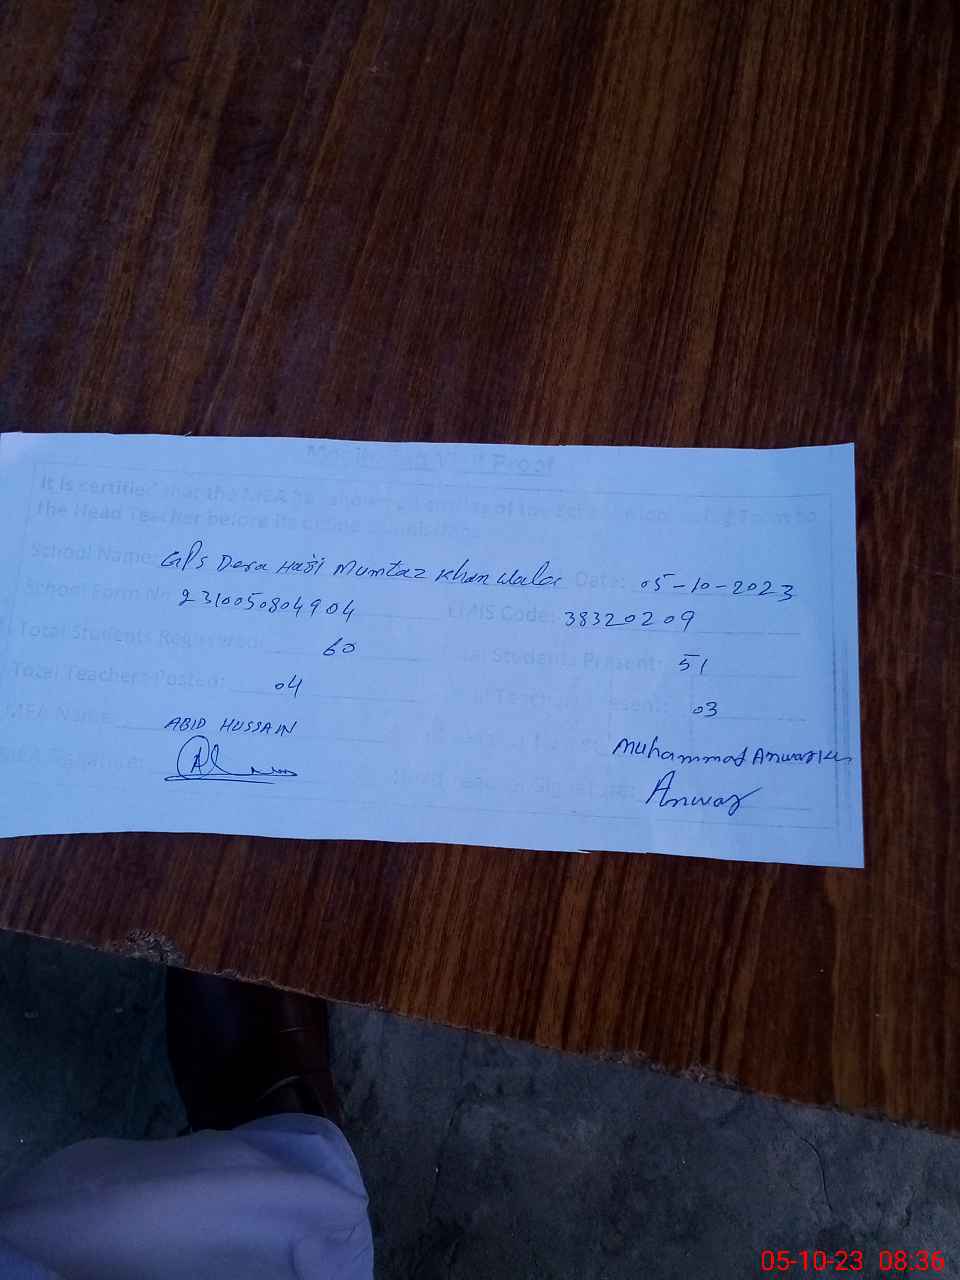 Monitoring Visit Proof
It is certified that the MEA has shown all entries of the School Monitoring Form to
the Head Teacher before its online submission.
School Name: GPS Dera Haji Mumtaz Khan Wala Date: 05-10-2023
School Form No: 2310050804904 EMIS Code: 38320209
Total Students Registered: 60 Total Students Present: 51
Total Teachers Posted: 04 Total Teachers Present: 03
MEA Name: ABID HUSSAIN Muhammad Anwar
MEA Signature: Head Teacher Signature: Anwar
05-10-23 08:36